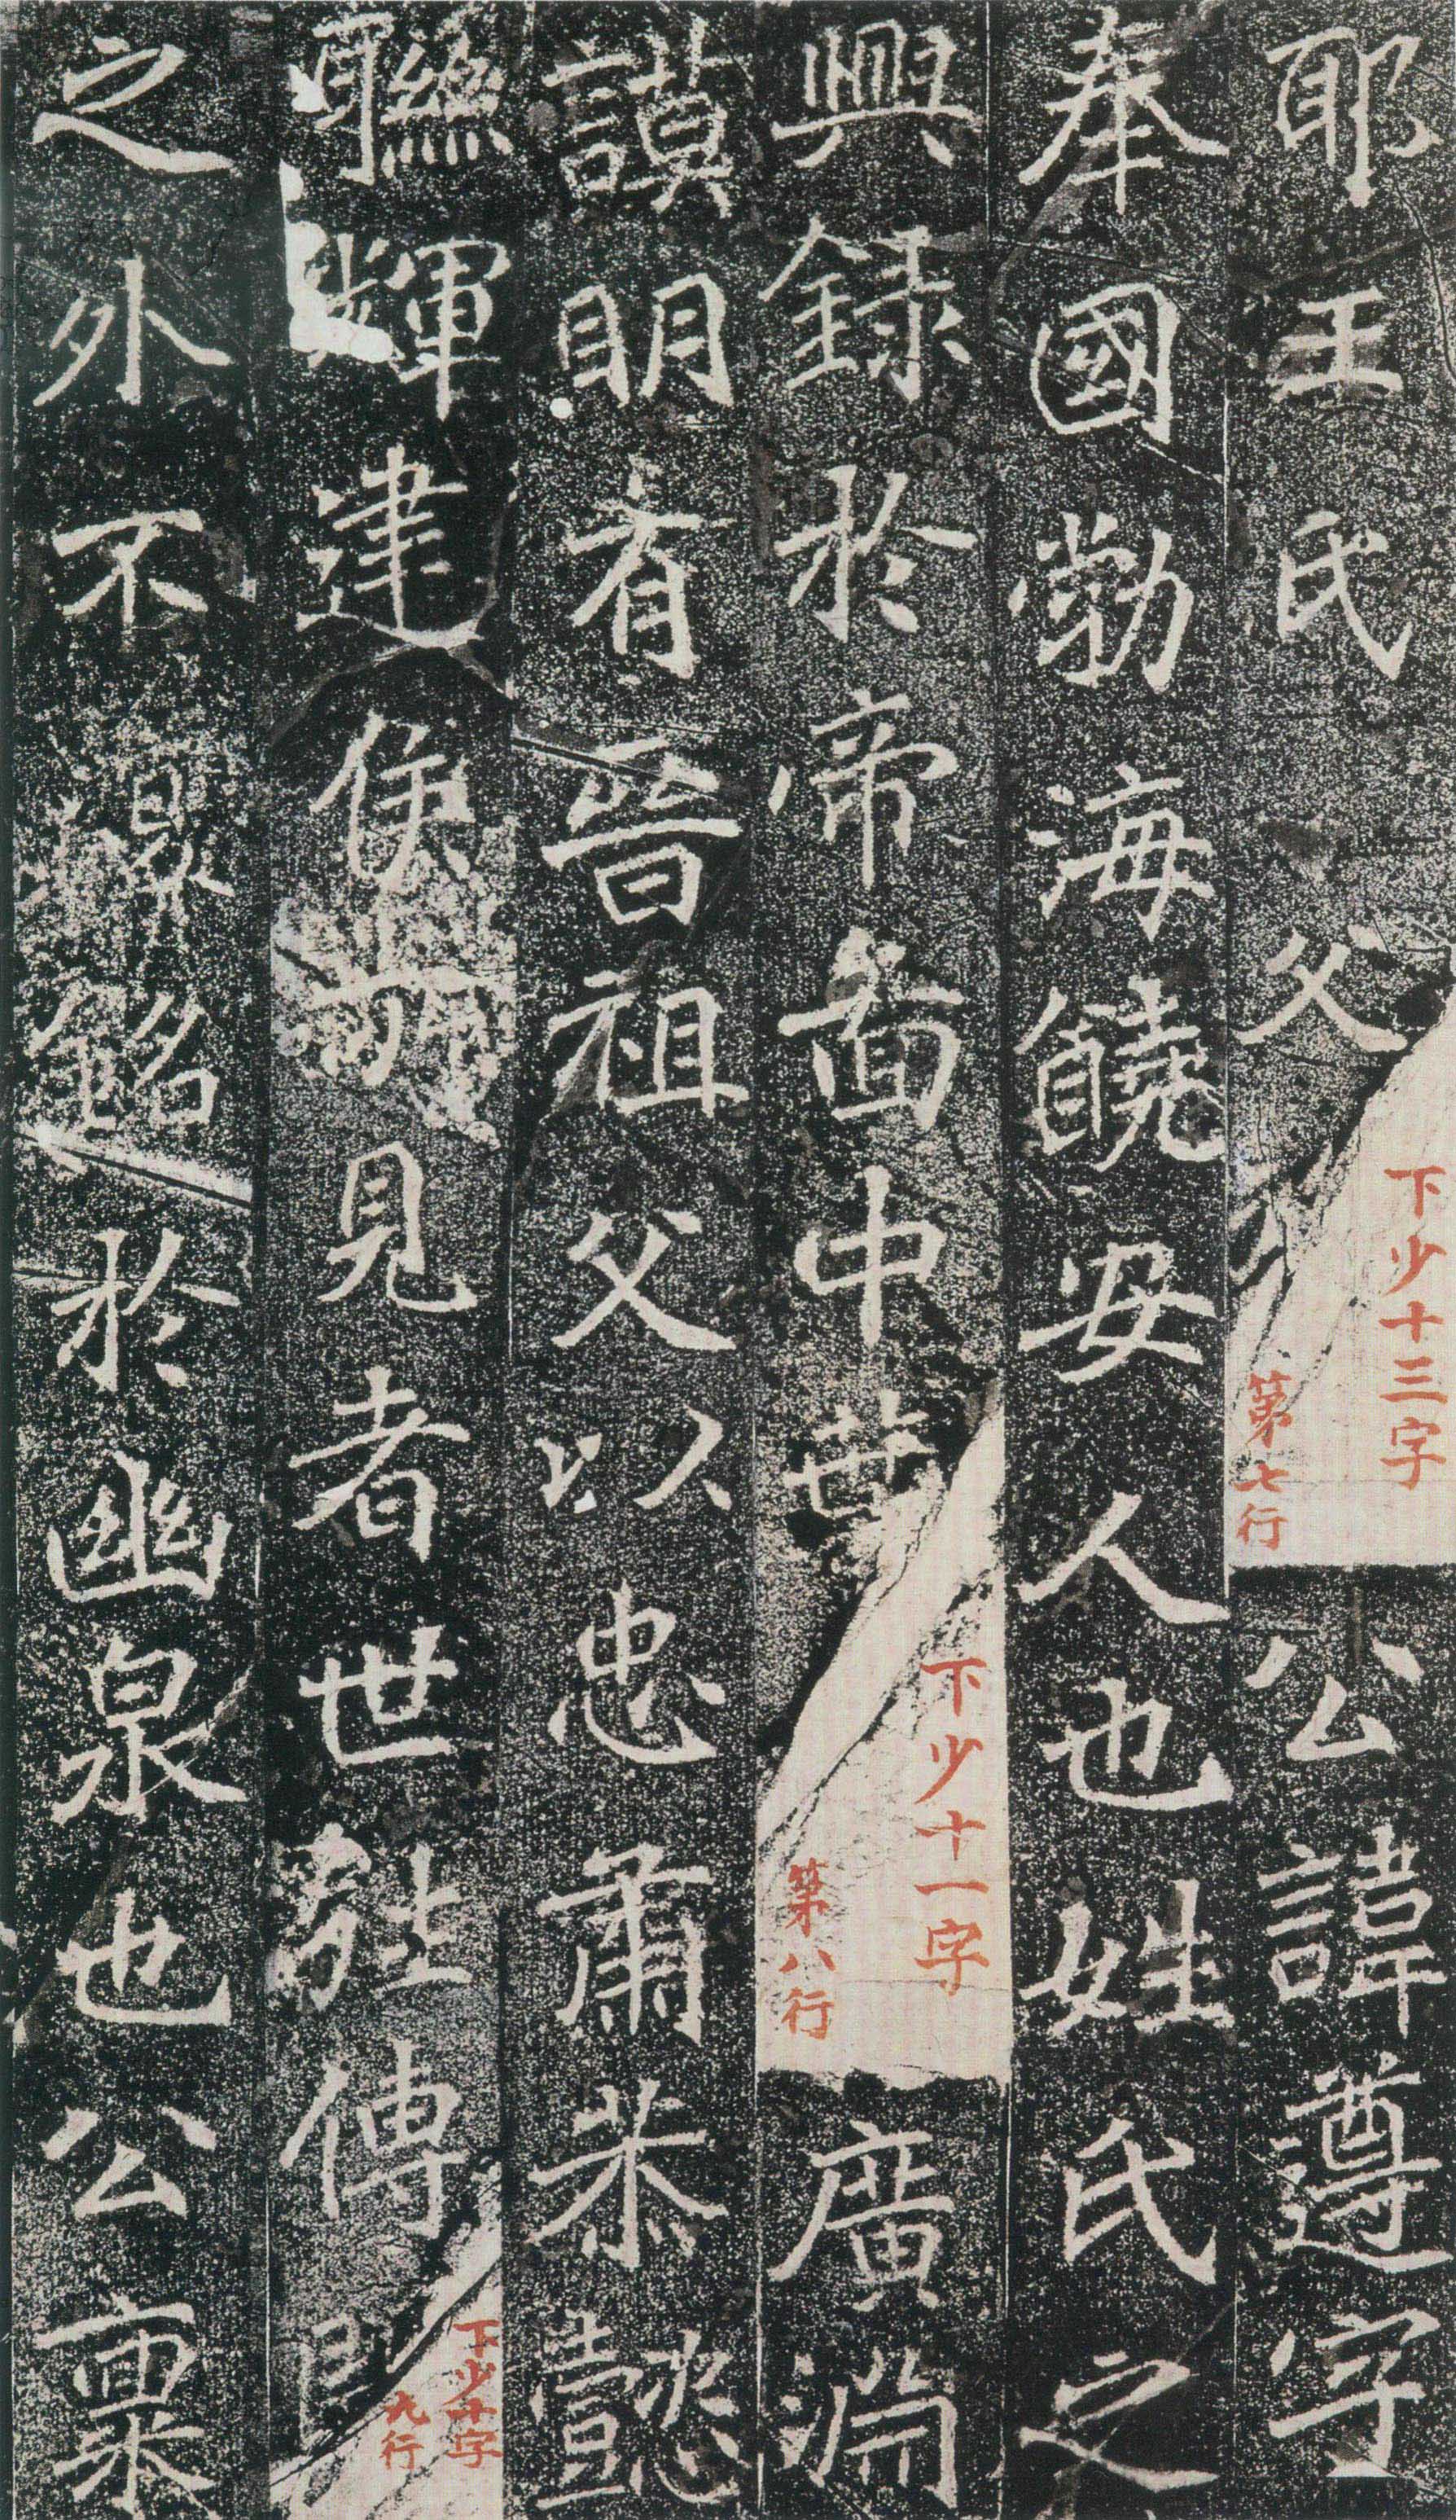 耶王氏父
下少十三字
第七行
公諱遵字
奉國勃海饒安人也姓氏之
興録於帝啚中葉
下少十一字
第八行
廣淵
謨明有晉祖父以忠肅恭懿
聯輝建侯見者世傳
下少十字
九行
之外不銘於幽泉也公禀